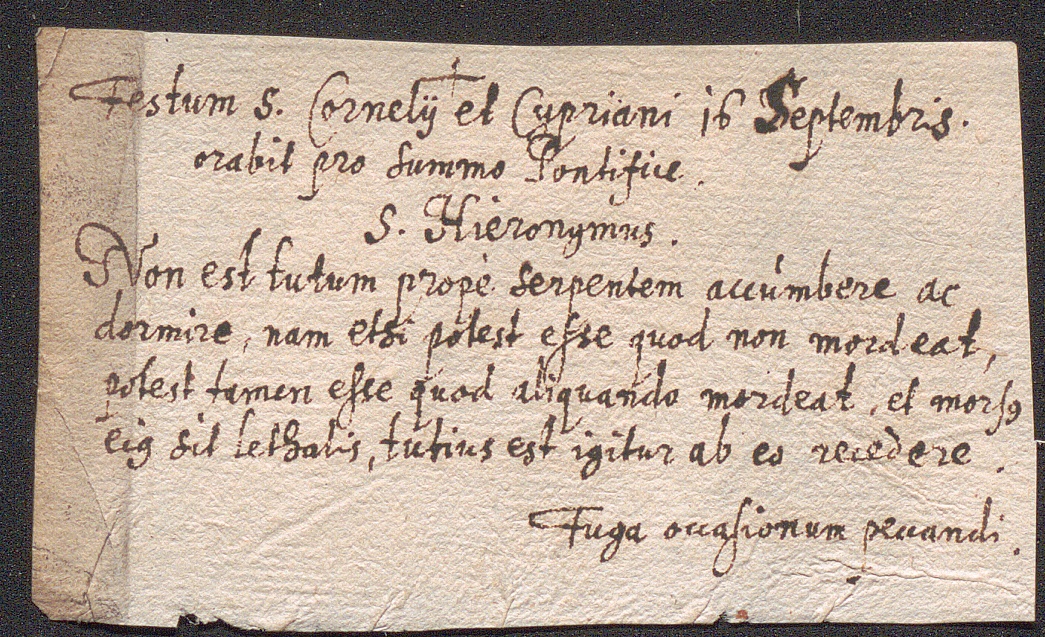 Festum S. Cornelij et Cypriani 16 Septembris.
orabit pro summo Pontifice.
S. Hieronymus.
Non est tutum propè serpentem accúmbere ac
dormire, nam etsi potest esse quod non mordeat,
potest tamen esse quod aliquando mordeat, et morsꝰ
eiꝰ sit lethalis, tutius est igitur ab eo recèdere.
Fuga occasionum peccandi.